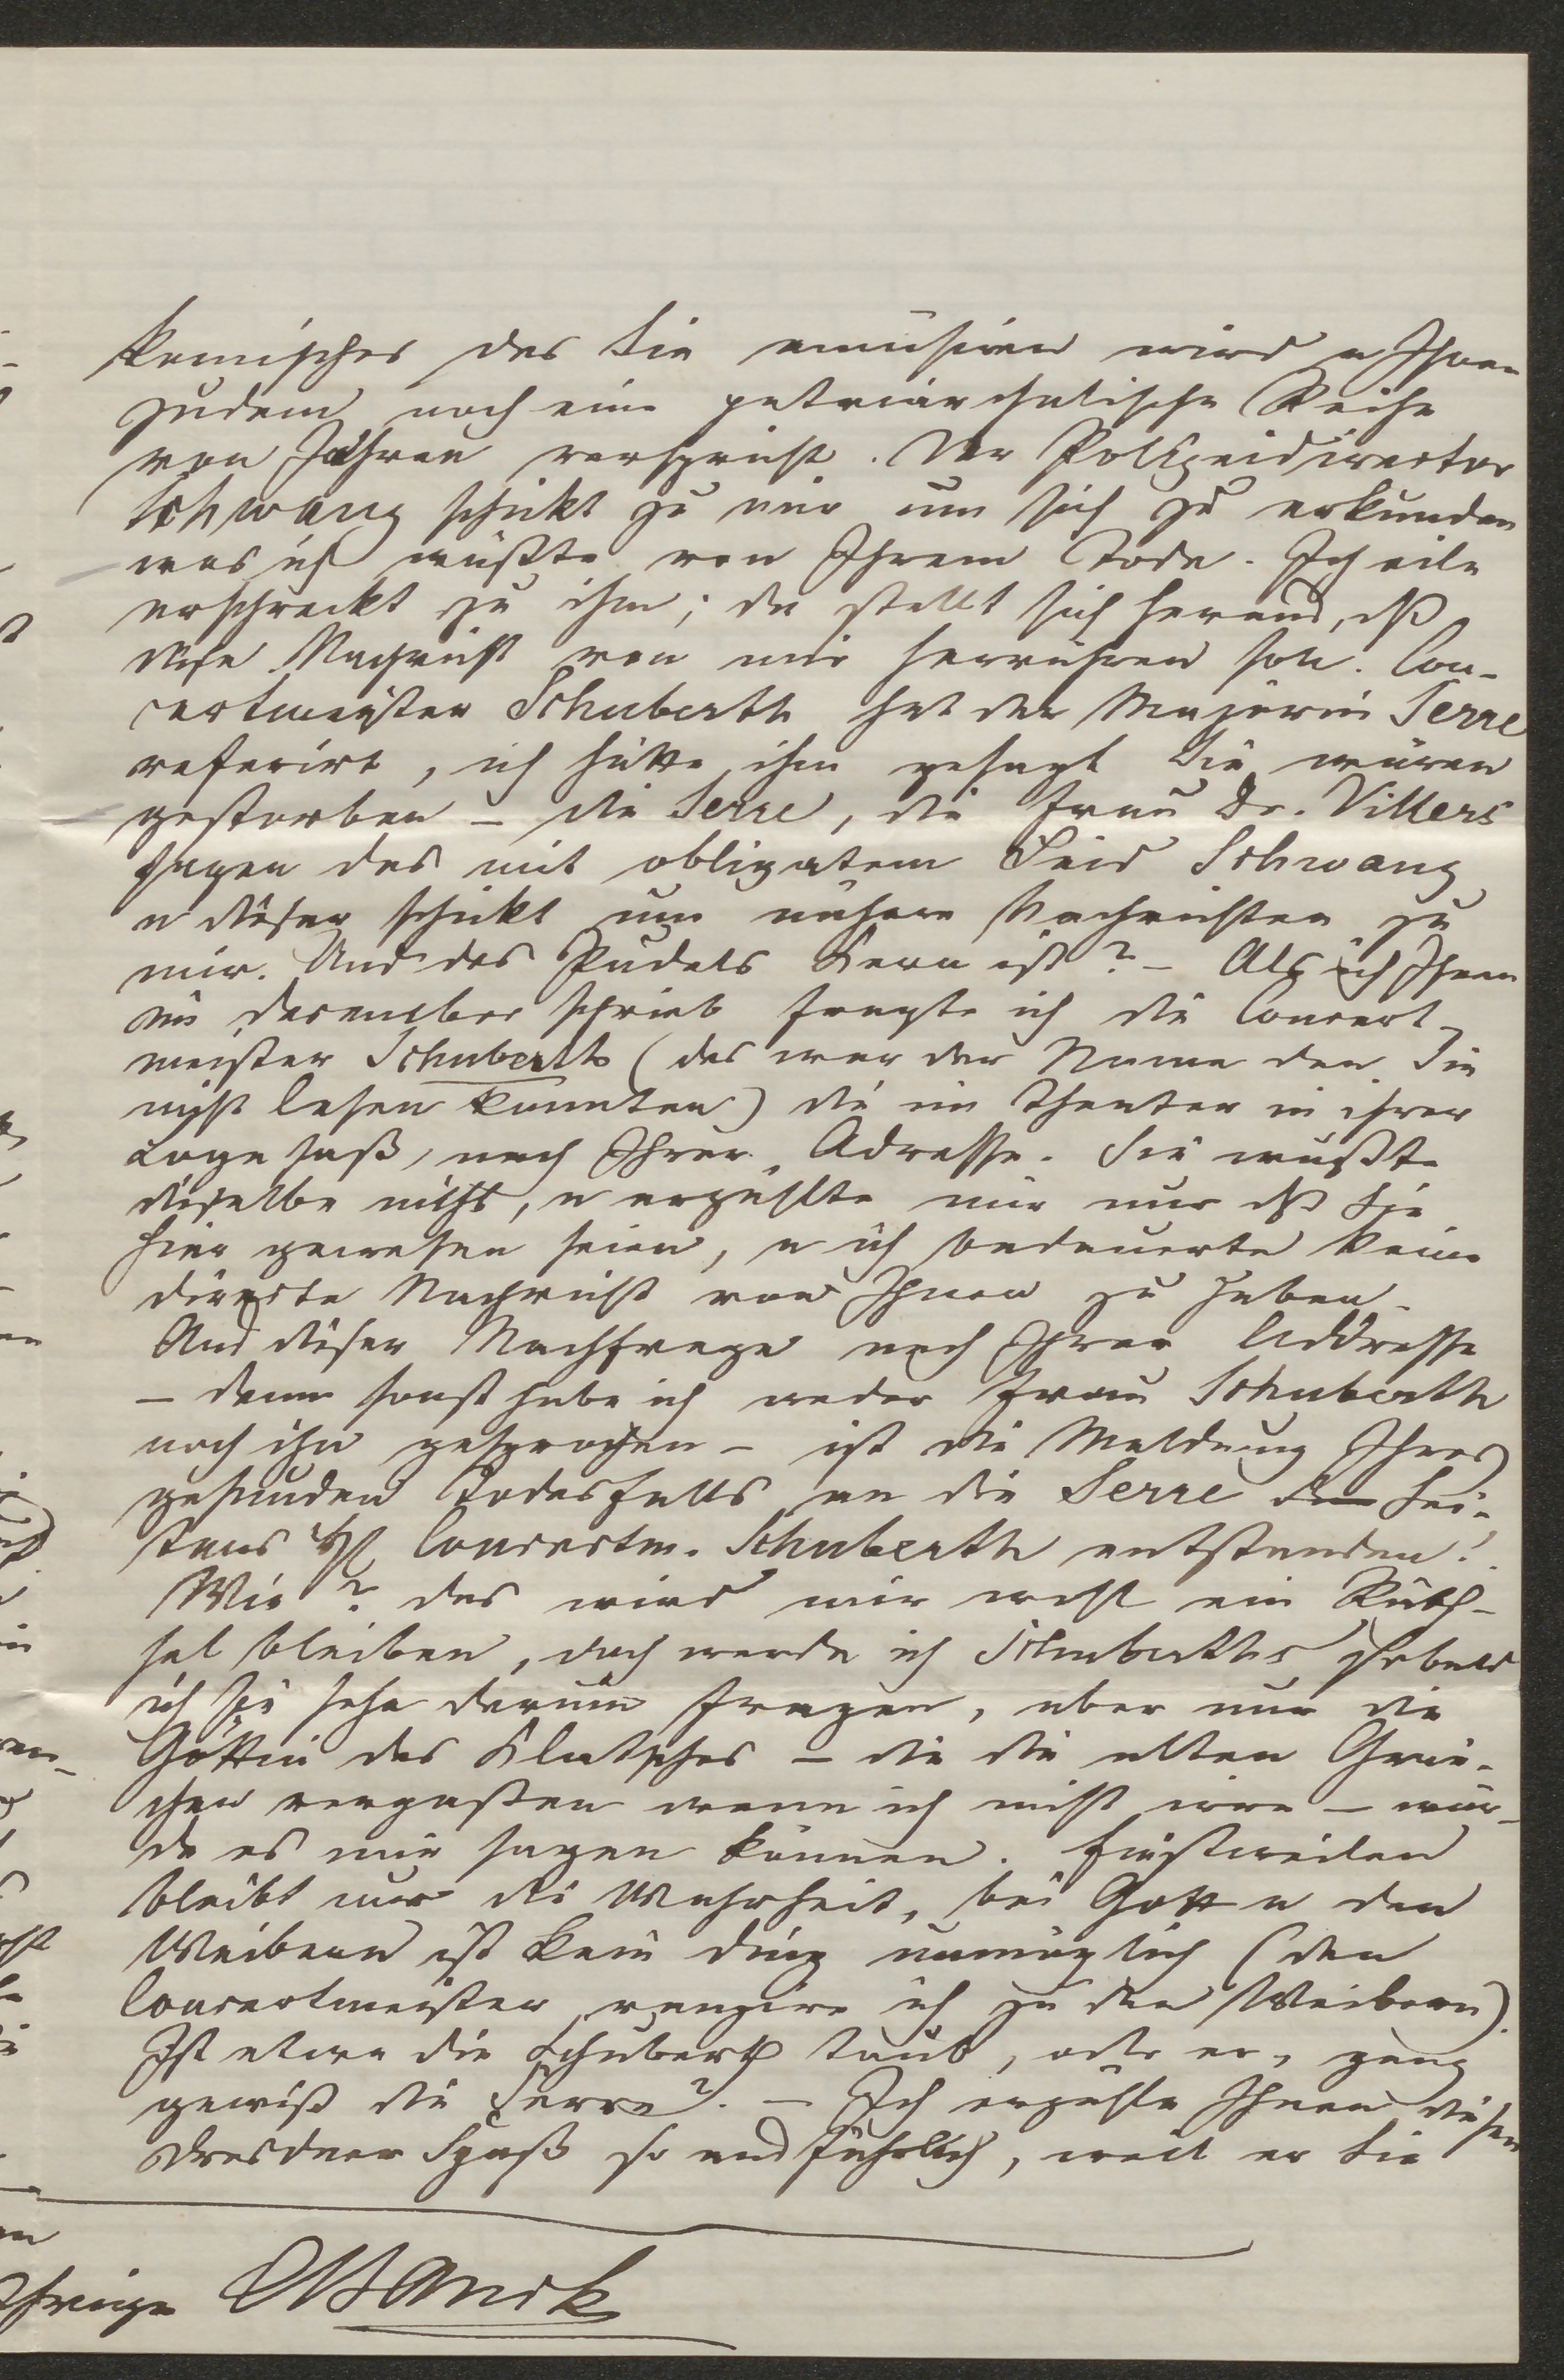 komisches das Sie amüsiren wird u Ihnen
zudem noch eine patriarchalische Reihe
von Jahren verspricht. Der Polizeidirector
Schwang schickt zu mir um sich zu erkunden
was ich wüßte von Ihrem Tode. Ich eile
erschreckt zu ihm; da stellt sich heraus, dß
diese Nachricht von mir herrühren soll. Con-
certmeister Schuberth hat der Majorin Serre
referirt, ich hätte ihm gesagt Sie wären
gestorben – die Serre, die Frau Dr. Villers
sagen das mit obligatem Leid Schwang
u dieser schickt um nähere Nachrichten zu
mir. Und des Pudels Kern ist? – Als ich Ihnen
im December schrieb fragte ich die Concert-
meister Schuberth (das war der Name den Sie
nicht lesen konnten) die im Theater in ihrer
Loge saß, nach Ihrer Adresse. Sie wußte
dieselbe nicht, u erzählte mir nur dß Sie
hier gewesen seien, u ich bedauerte keine
directe Nachricht von Ihnen zu haben.
Aus dieser Nachfrage nach Ihrer Addresse
– denn sonst habe ich weder Frau Schuberth
noch ihn gesprochen – ist die Meldung Ihres
gesunden Todesfalls an die Serre Sei-
tens Concertm. Schuberth entstanden!
Wie? das wird mir wohl ein Räth-
sel bleiben, doch werde ich Schuberths sobald
ich sie sehe darum fragen, aber nur die
Göttin des Klatsches – die die alten Grie-
chen vergaßen wenn ich nicht irre – wür-
de es mir sagen können. Einstweilen
bleibt nur die Wahrheit, bei Gott u den
Weibern ist kein Ding unmöglich (den
Concertmeister rangire ich zu den Weibern).
Ist etwa die Schuberth taub, oder er, ganz
gewiß die Serre? – Ich erzähle Ihnen diesen
Dresdner Spaß so ausführlich, weil er Sie
Ihrige CBanck